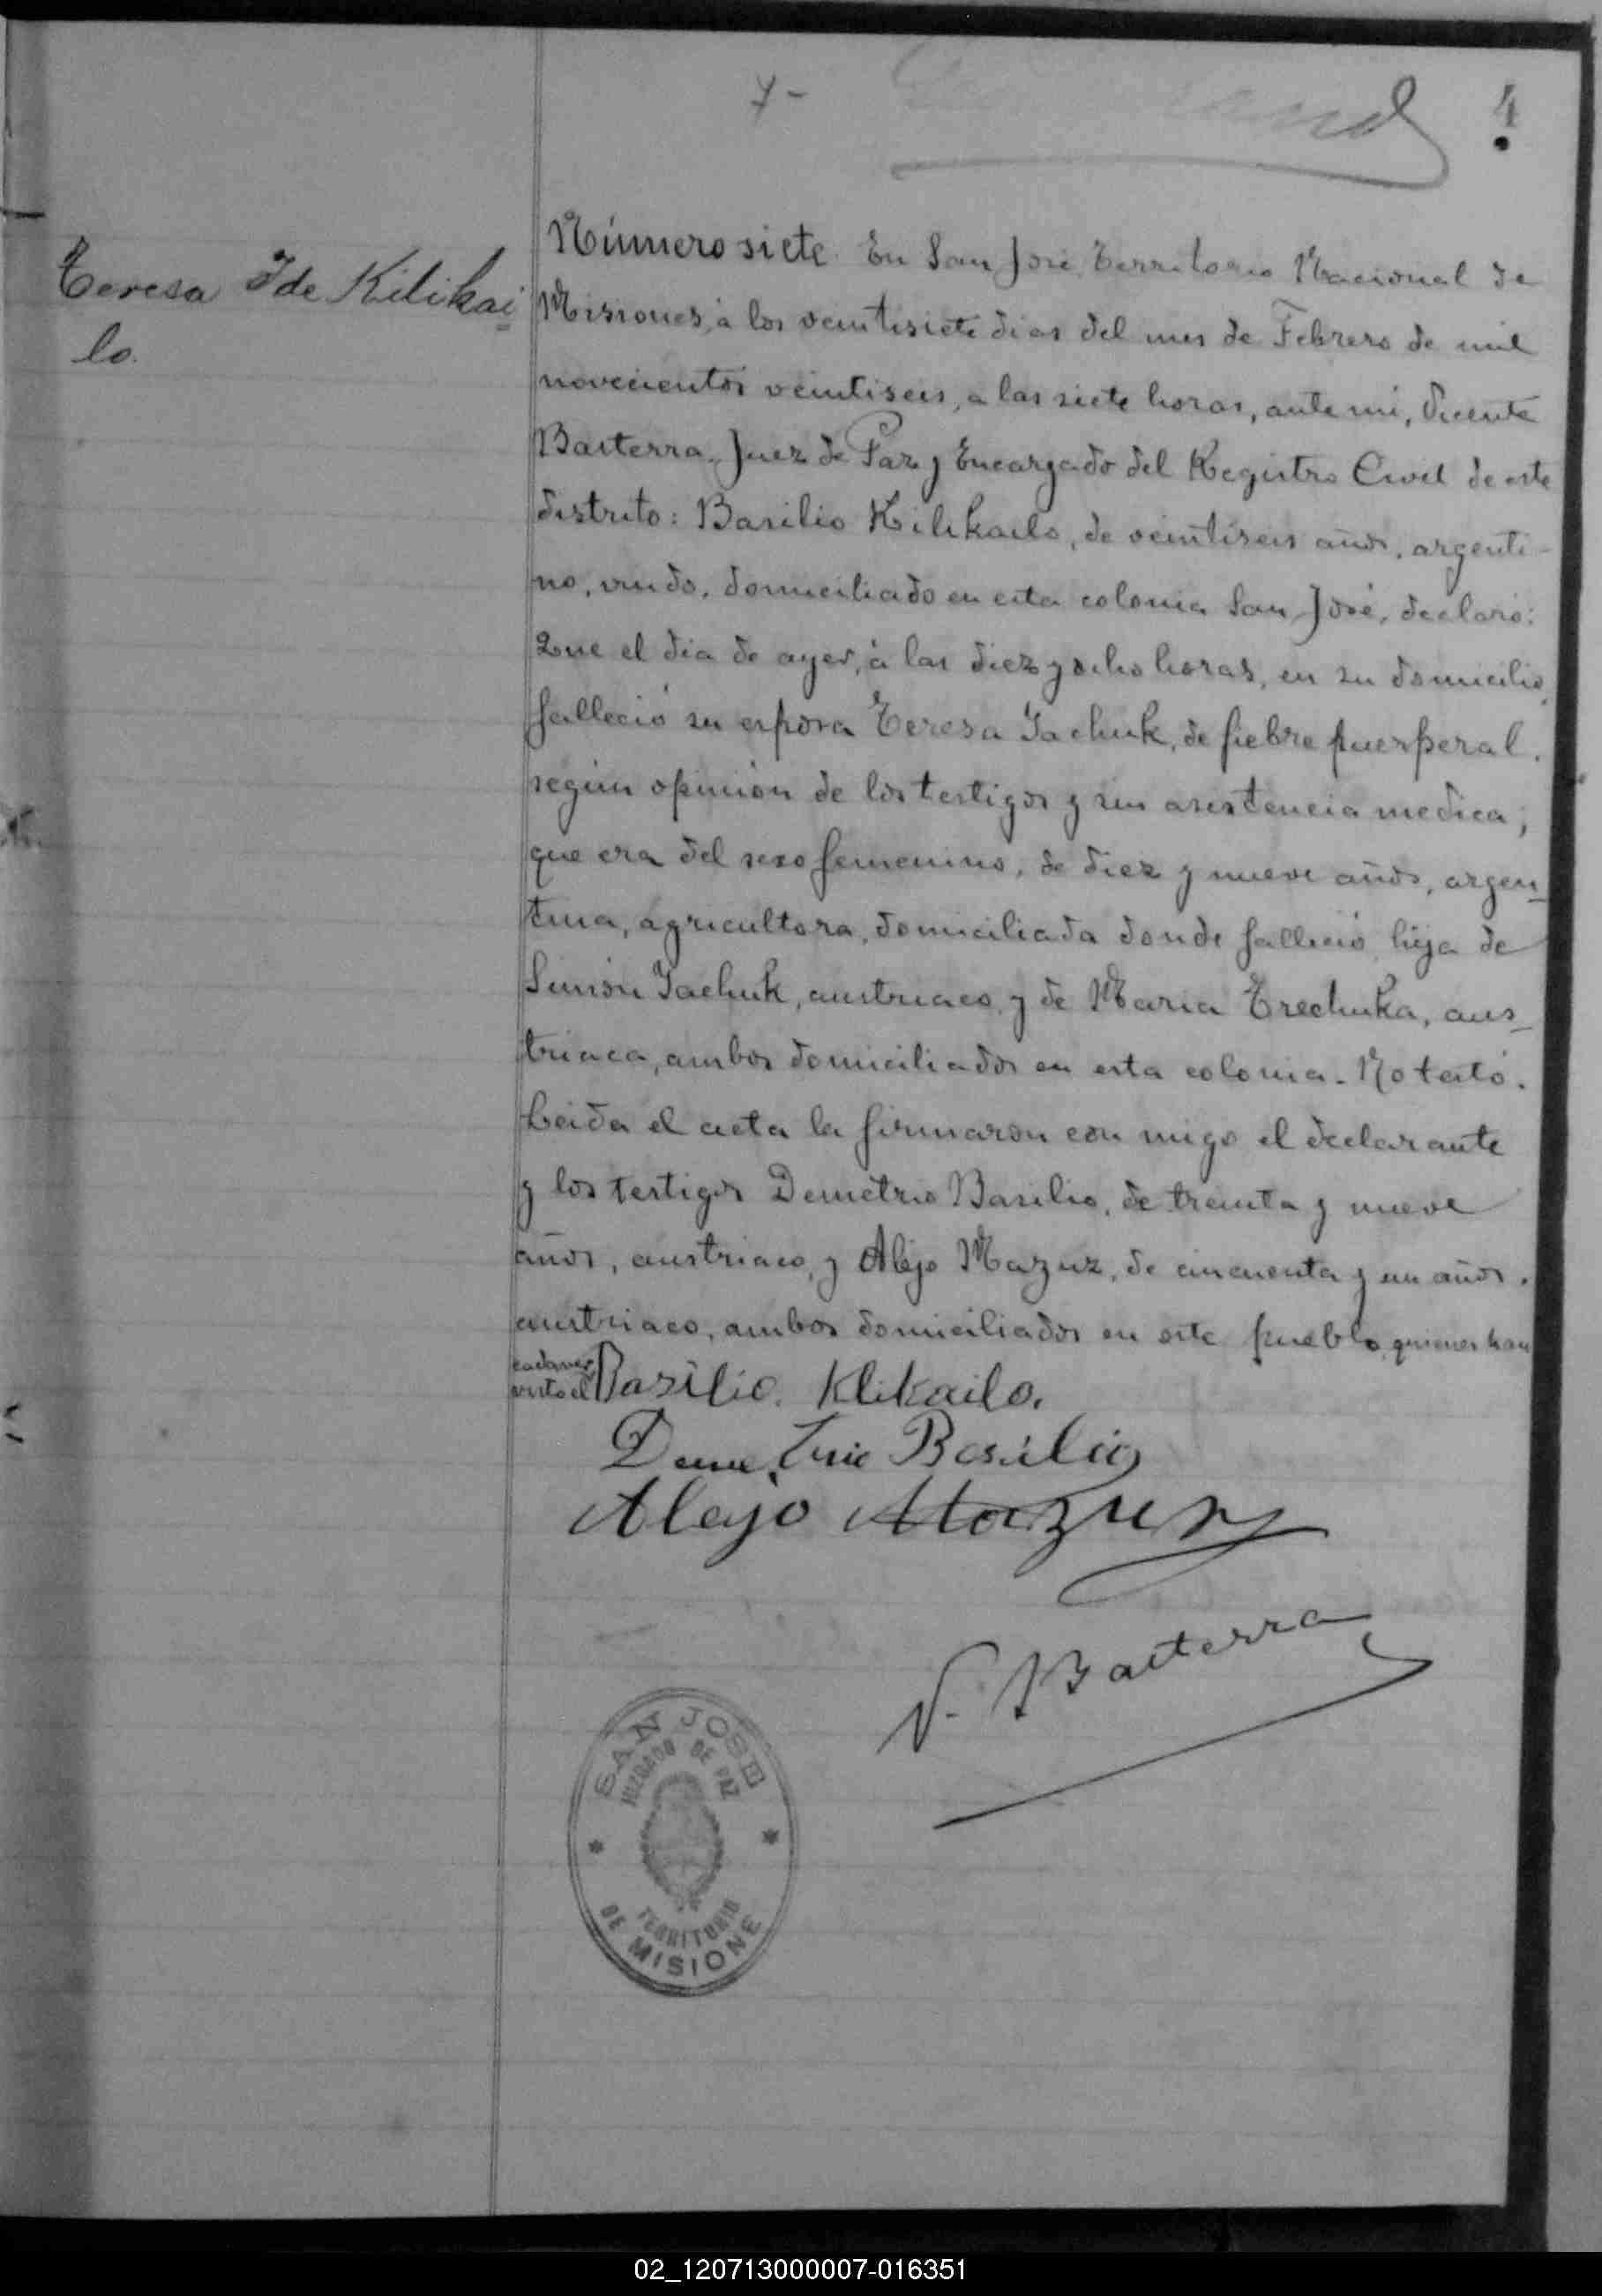 7-
4
Teresa I de Kilikai
lo.
Número siete. En San José, Territorio Nacional de
Misiones, á los veintisiete dias del mes de Febrero de mil
novecientos veintiseis, a las siete horas, ante mi, Vicente
Basterra, Juez de Paz y Encargado del Registro Civil de este
distrito: Basilio Kilikailo, de veintiseis años, argenti-
no, viudo, domiciliado en esta colonia San José, declaró:
Que el dia de ayer, á las diez y ocho horas, en su domicilio,
falleció su esposa Teresa Iachuk, de fiebre puerperal.
según opinión de los testigos y sin asistencia medica;
que era del sexo femenino, de diez y nueve años, argen-
tina, agricultora, domiciliada donde falleció, hija de
Simón Iachuk, austriaco, y de Maria Trechuka, aus-
triaca, ambos domiciliados en esta colonia. No testó.
Leida el acta la firmaron con migo el declarante
y los testigos Demetrio Basilio, de treinta y nueve
años, austriaco, y Alejo Mazur, de cincuenta y un años.
austriaco, ambos domiciliados en este pueblo, quienes han
visto el cadaver
Basilio. Klikailo.
Demetrio Basilio
Alejo Mazur
V. Basterra
SAN JOSE
JUZGADO DE PAZ
TERRITORIO
DE MISIONE
02_120713000007-016351